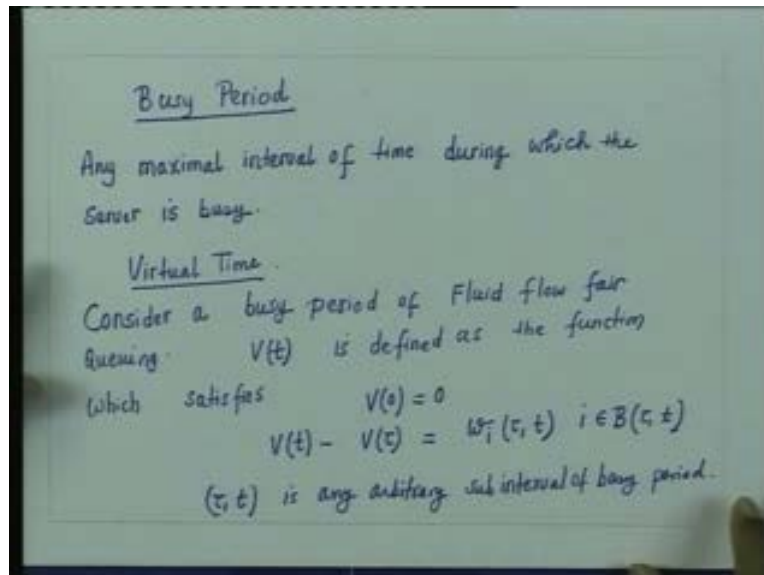 Busy Period
Any maximal interval of time during which the
Server is busy.
Virtual Time.
Consider a busy period of Fluid flow fair
Queuing. V(t) is defined as the function
which satisfies V(0) = 0
V(t) - V(τ) = w_i(τ, t) i ∈ B(τ, t)
(τ, t) is any arbitrary sub interval of busy period.